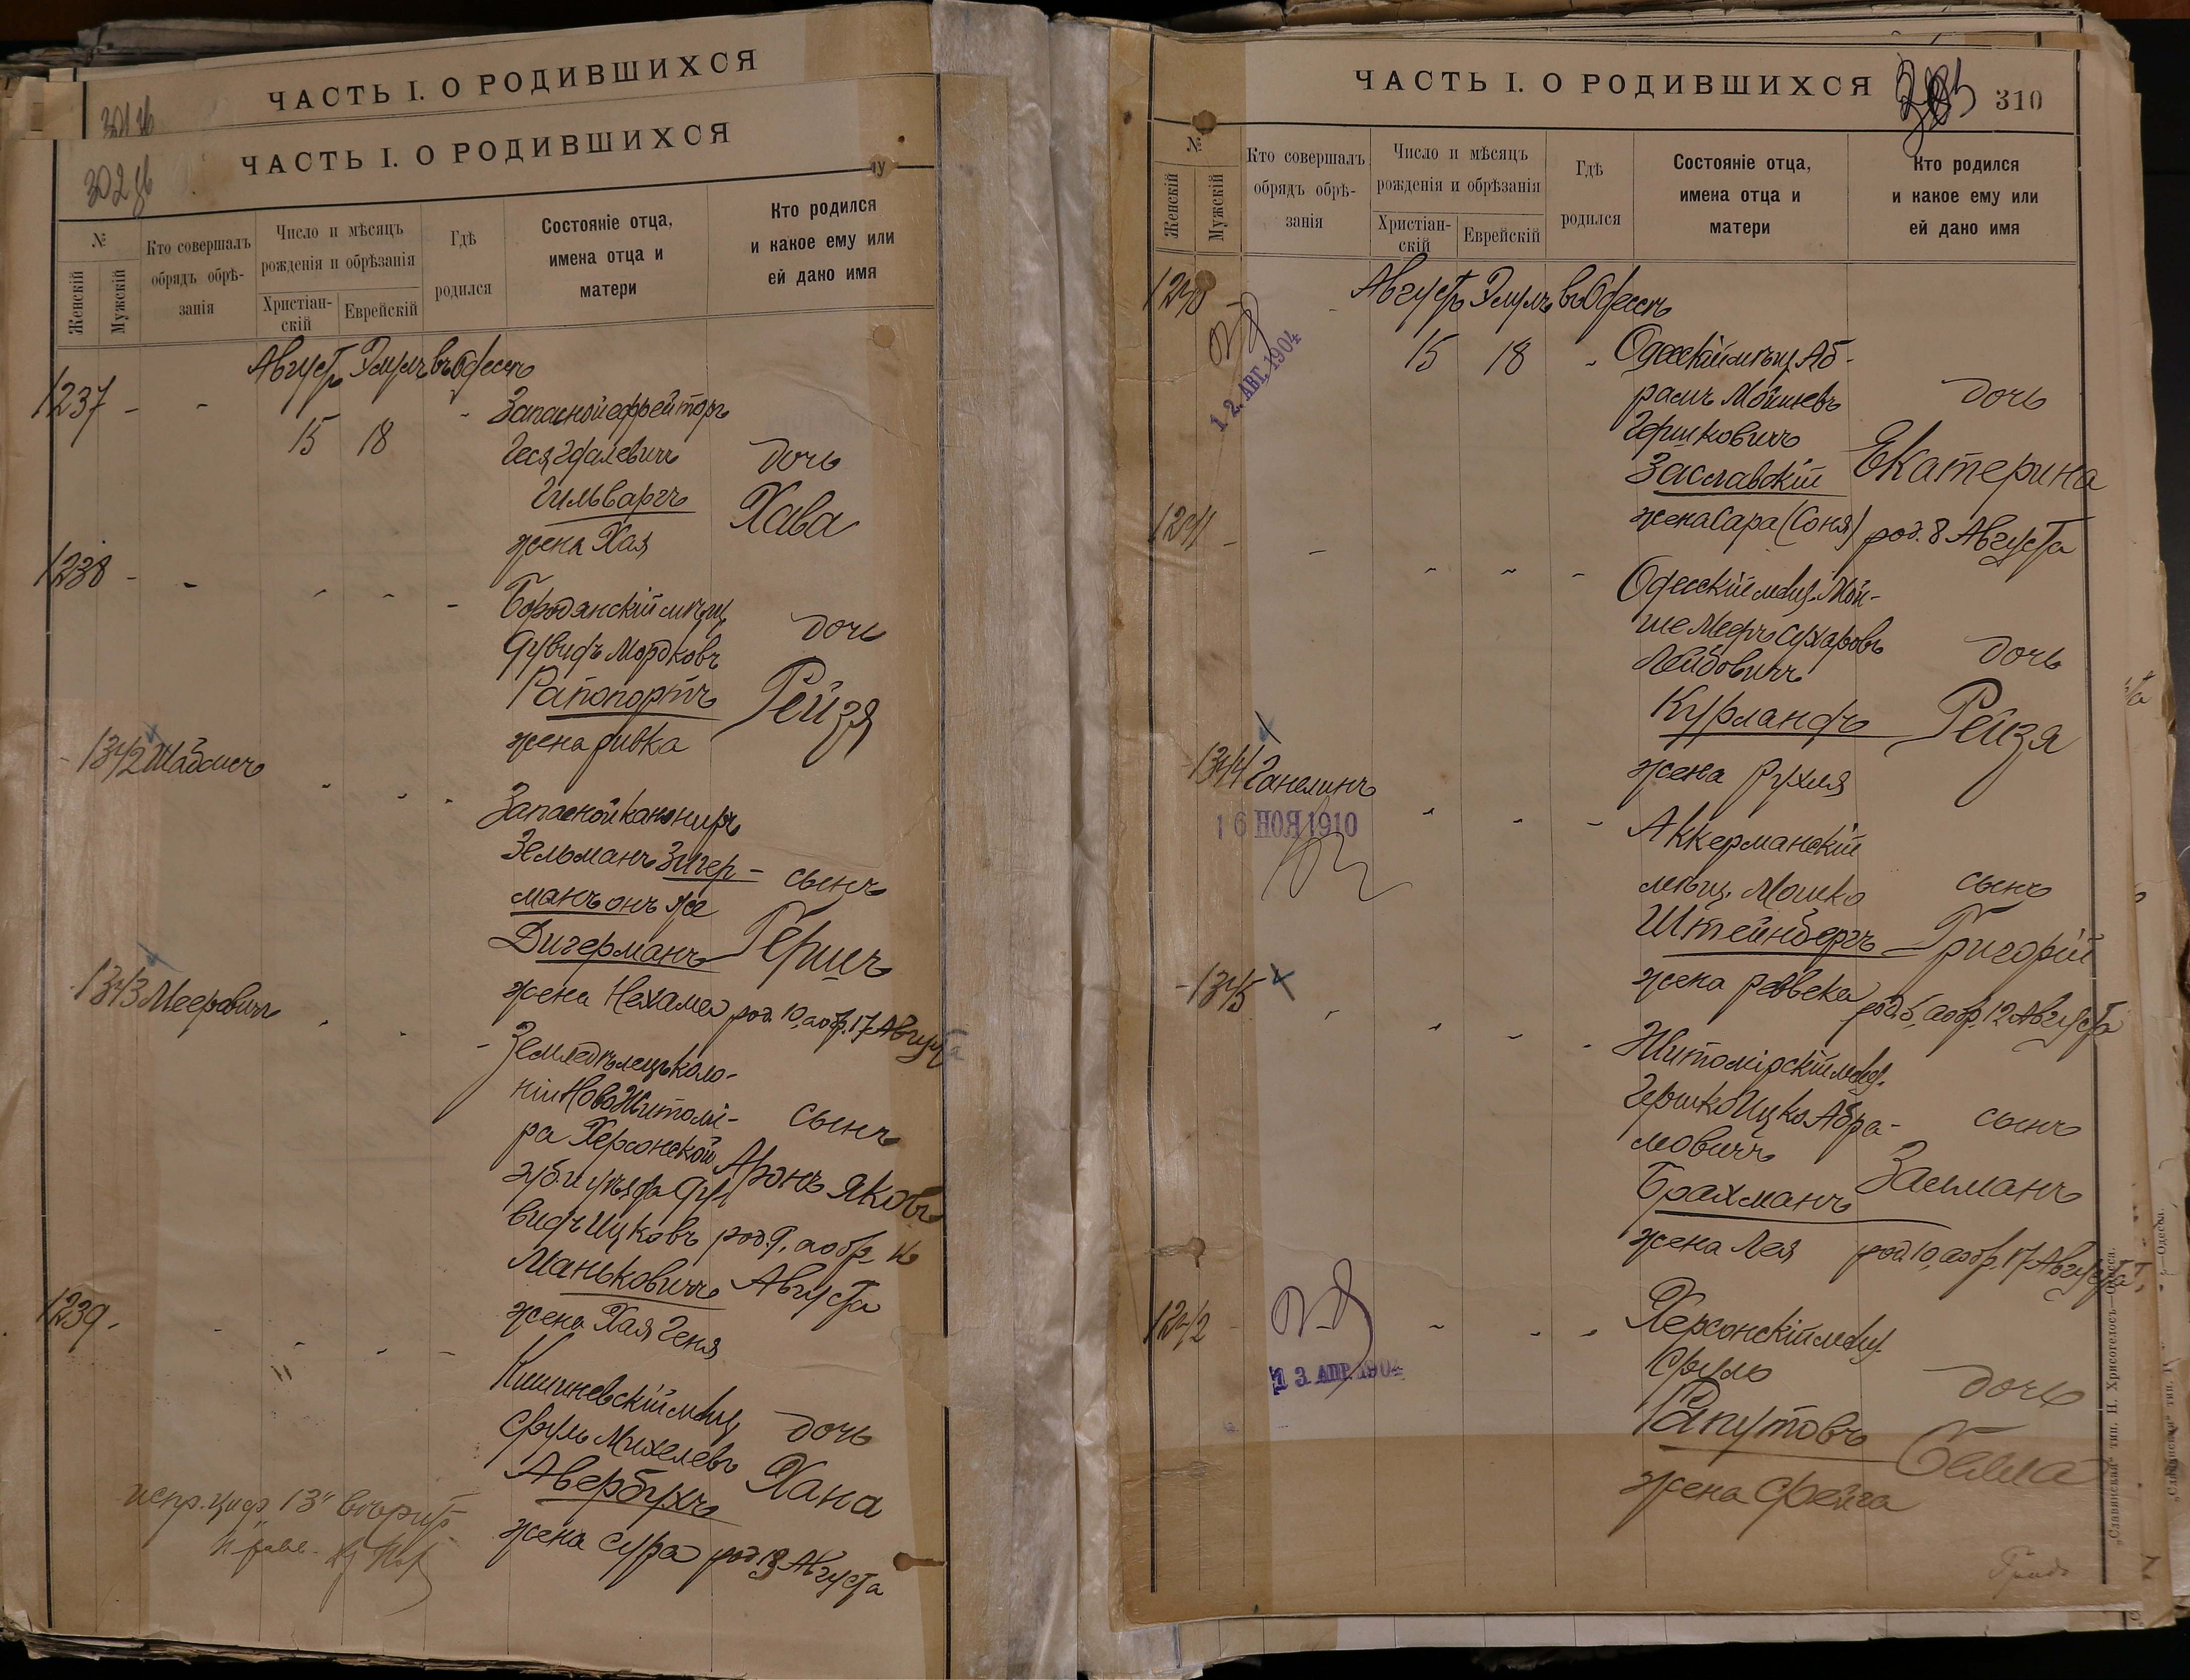 ЧАСТЬ I. О РОДИВШИХСЯ
ЧАСТЬ I. О РОДИВШИХСЯ
302
№
Женскій
Мужскій
Кто совершалъ
обрядъ обрѣ-
занія
Число и мѣсяцъ
рожденія и обрѣзанія
Христіан-
скій
Еврейскій
Гдѣ
родился
Состояніе отца,
имена отца и
матери
Кто родился
и какое ему или
ей дано имя
Августъ Элулъ въ Одессѣ
1237 - -
15 18
Запасной ефрейторъ
Гильваргъ
жена Хая
дочь
Хава
1238 - -
Бородянскій мѣщ
Дувидъ Мордковъ
Рапопортъ
жена Ривка
дочь
Рейзя
1342 Шабсисъ
Запасной канониръ
Зельманъ Зигер-
манъ онъ же
Дигерманъ
жена Нехама
сынъ
Гершъ
род. 10, а обр. 17 Августа
1343 Мееровичъ
Земледѣлецъ коло-
ніи Ново Житомі-
ра Херсонской
губ. и уѣзда Ду-
видъ Ицковъ
Маньковичъ
жена Хая Геня
сынъ
Аронъ Яковъ
род. 9, а обр. 16
Августа
1239 -
Кишиневскій мѣщ
Сруль Михелевъ
Авербухъ
жена Сура
дочь
Хана
род 13 Августа
испр. циф. „13"
ЧАСТЬ I. О РОДИВШИХСЯ
310
№
Женскій
Мужскій
Кто совершалъ
обрядъ обрѣ-
занія
Число и мѣсяцъ
рожденія и обрѣзанія
Христіан-
скій
Еврейскій
Гдѣ
родился
Состояніе отца,
имена отца и
матери
Кто родился
и какое ему или
ей дано имя
Августъ Элулъ въ Одессѣ
1240 -
12. АВГ. 1904
15 18
Одесскій мѣщ Аб-
рамъ Мойшевъ
Гершковичъ
Заславскій
жена Сара (Соня)
дочь
Екатерина
род. 8 Августа
1241 -
Одесскій мѣщ. Мой-
ше Мееръ Сухаровъ
Лейбовичъ
Курландъ
жена Рухля
дочь
Рейзя
1344 Ганелинъ
16 НОЯ 1910
Аккерманскій
мѣщ. Мошко
Штейнбергъ
жена Ревека
сынъ
Григорій
род. 5, а обр. 12 Августа
1345
Житомірскій мѣщ.
Гершко Ицко Абра-
мовичъ
Брахманъ
жена Лея
сынъ
Залманъ
род. 10, а обр. 17 Августа
1242 -
13 АПР. 1904
Херсонскій мѣщ
Сруль
Рапутовъ
жена Фейга
дочь
Бейла
„Славянская" тип. Н. Хрисогелосъ—Одесса.